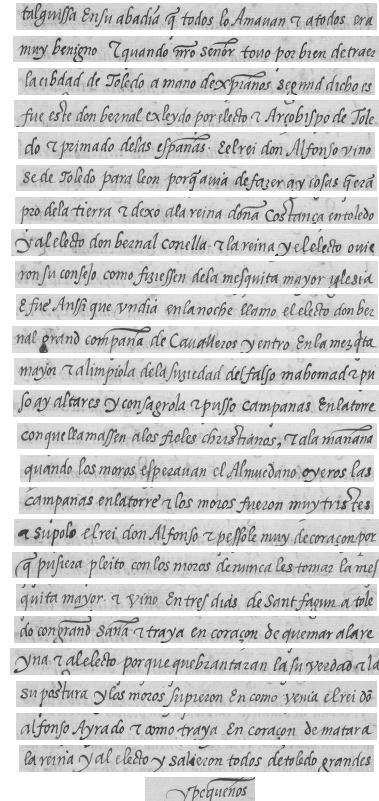 tal guissa En su abadia q̃ todos lo Amauan ⁊ a todos era
muy benigno ⁊ quando nr̃o señor touo por bien de traer
la cibdad de Toledo a mano de xp̃ianos segund dicho es
fue este don bernal exleydo por electo ⁊ Arçobispo de Tole
do ⁊ primado de las españas. El rei don Alfonso vino
se de Toledo para leon porq̃ auia de fazer ay cosas q̃ erã
pro de la tierra ⁊ dexo a la reina doña Costança en toledo
y al electo don bernal con ella ⁊ la reina y el electo ouie
ron su consejo como fiziessen de la mesquita mayor iglesia
E fue Anssi que vn dia en la noche llamo el electo don ber
nal grand compaña de Caualleros y entro En la mezq̃ta
mayor ⁊ alimpiola de la suziedad del falso mahomad ⁊ pu
so ay altares y consagrola ⁊ pusso campanas En la torre
con que llamassen a los fieles christianos, ⁊ a la mañana
quando los moros esperauan el Almuedano oyeron las
campanas en la torre ⁊ los moros fueron muy tristes
⁊ supolo el rei don Alfonso ⁊ pessole muy de coraçon por
q̃ pusiera pleito con los moros de nunca les tomar la mes
quita mayor ⁊ vino En tres dias de Sant fagun a tole
do con grand saña ⁊ traya en coraçon de quemar a la re
yna ⁊ al electo porque quebrantaran la su verdad ⁊ la
su postura y los moros supieron En como venia el rei dõ
alfonso Ayrado ⁊ como traya En coraçon de matar a
la reina y al electo y salieron todos de toledo grandes
y pequeños